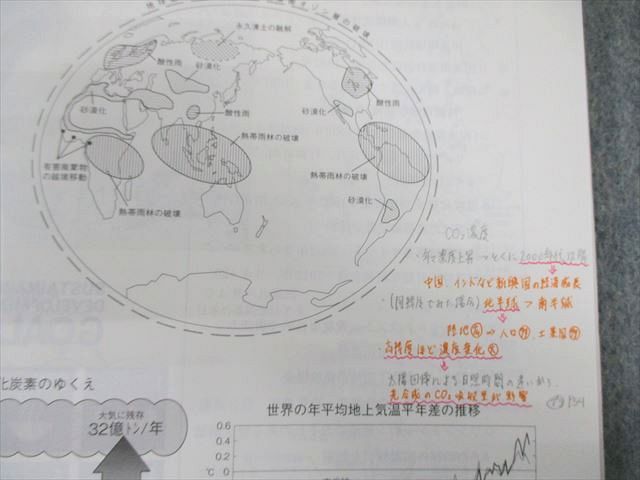 永久凍土の融解
酸性雨
酸性雨
砂漠化
砂漠化
砂漠化
酸性雨
熱帯雨林の破壊
有害廃棄物
の越境移動
熱帯雨林の破壊
熱帯雨林の破壊
砂漠化
CO₂濃度
・年々濃度上昇→とくに2000年代以降
中国、インドなど新興国の経済成長
・(同緯度でみた場合) 北半球 > 南半球
陸地㊛ ⇒ 人口
・高緯度ほど濃度変化㊛
太陽回帰による日照時間の違いから
光合成のCO₂吸収量が影響
P134
化炭素のゆくえ
大気に残存
32億トン/年
世界の年平均地上気温平年差の推移
0.6
0.4
0.2
℃ 0
SUSTAINA
DEVELOPM